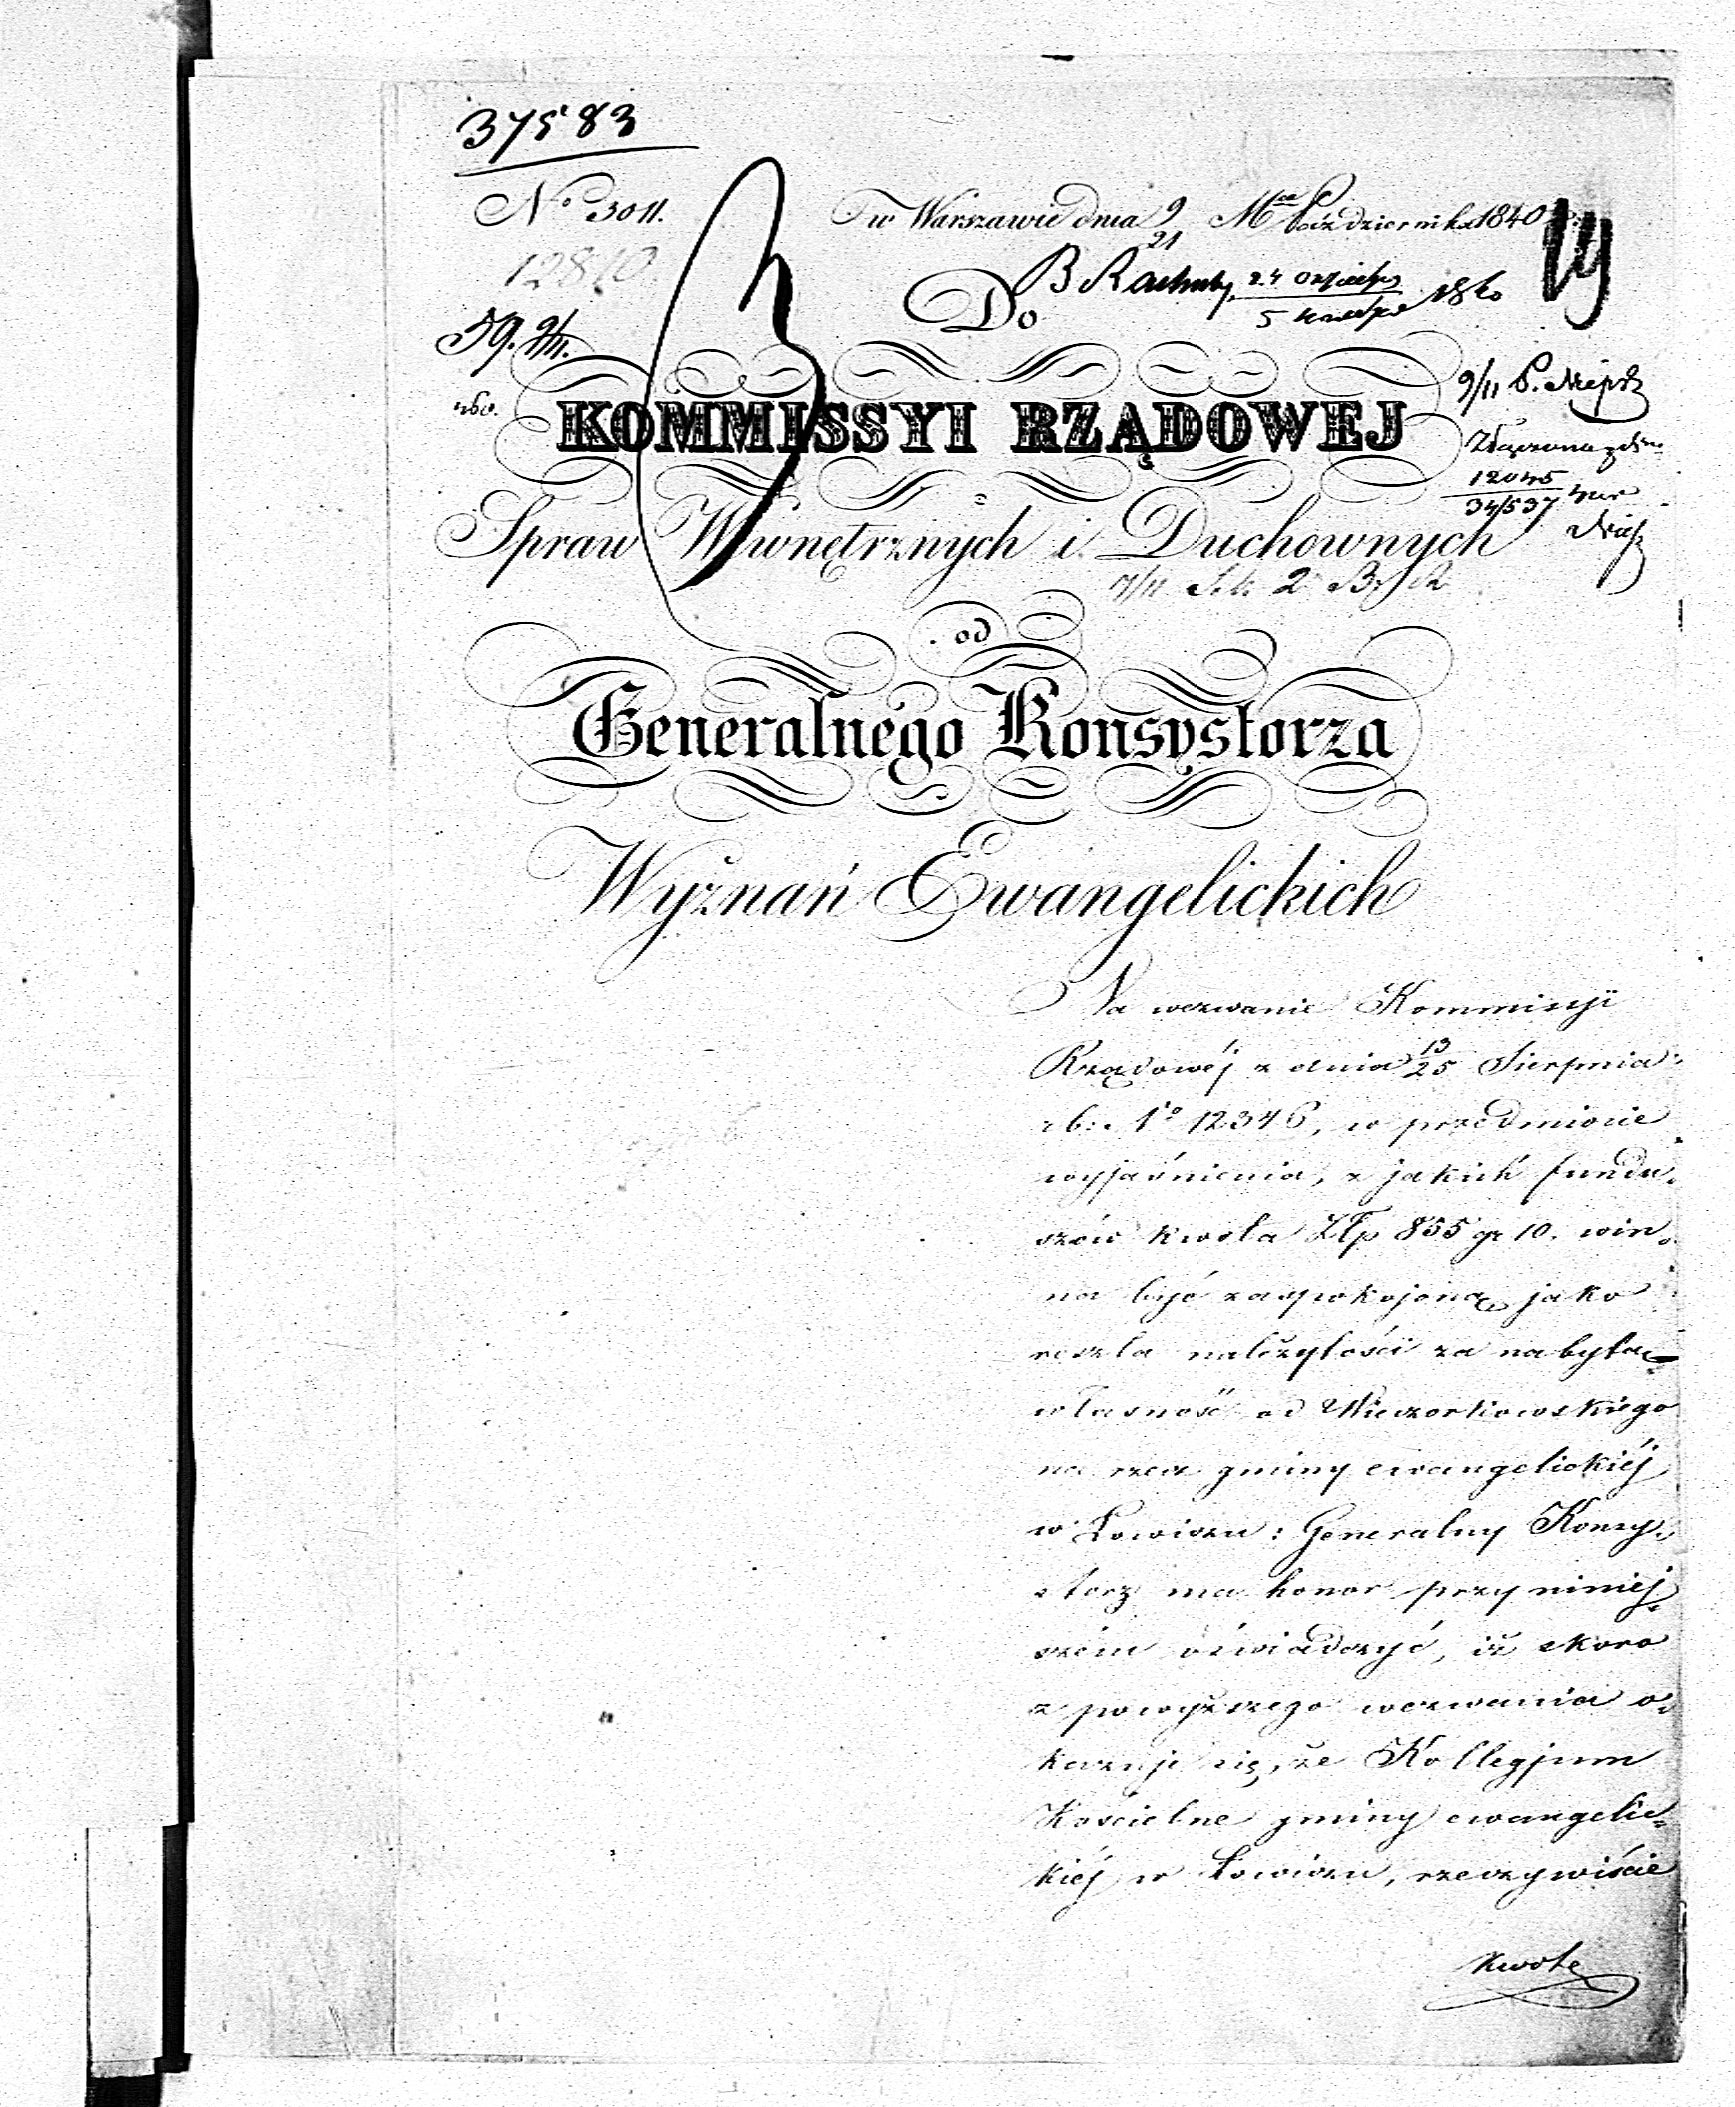 37583
No 3011.
w Warszawie dnia 9/21 Mca Października 1840 r.
12810
Do
59. 9/11.
KOMMISSYI RZĄDOWEJ
9/11 P.
Złączona z
12045
34537
Spraw Wewnętrznych i Duchownych
od
Generalnego Konsystorza
Wyznań Ewangelickich
Na wezwanie Kommissyi
Rządowéj z dnia 13/25 Sierpnia
rb: No 12346, w przedmiocie
wyjaśnienia, z jakich fundu-
szów kwota Złp 855 gr 10. win-
na być zaspokojoną jako
reszta należytości za nabytą
własność od Wieczorkowskiego
na rzecz gminy ewangelickiéj
w Łowiczu: Generalny Konsy-
storz ma honor przy niniej-
szém oświadczyć, iż skoro
z powyższego wezwania o-
kazuje się, że Kollegjum
Kościelne gminy ewangelic-
kiéj w Łowiczu, rzeczywiście
kwotę